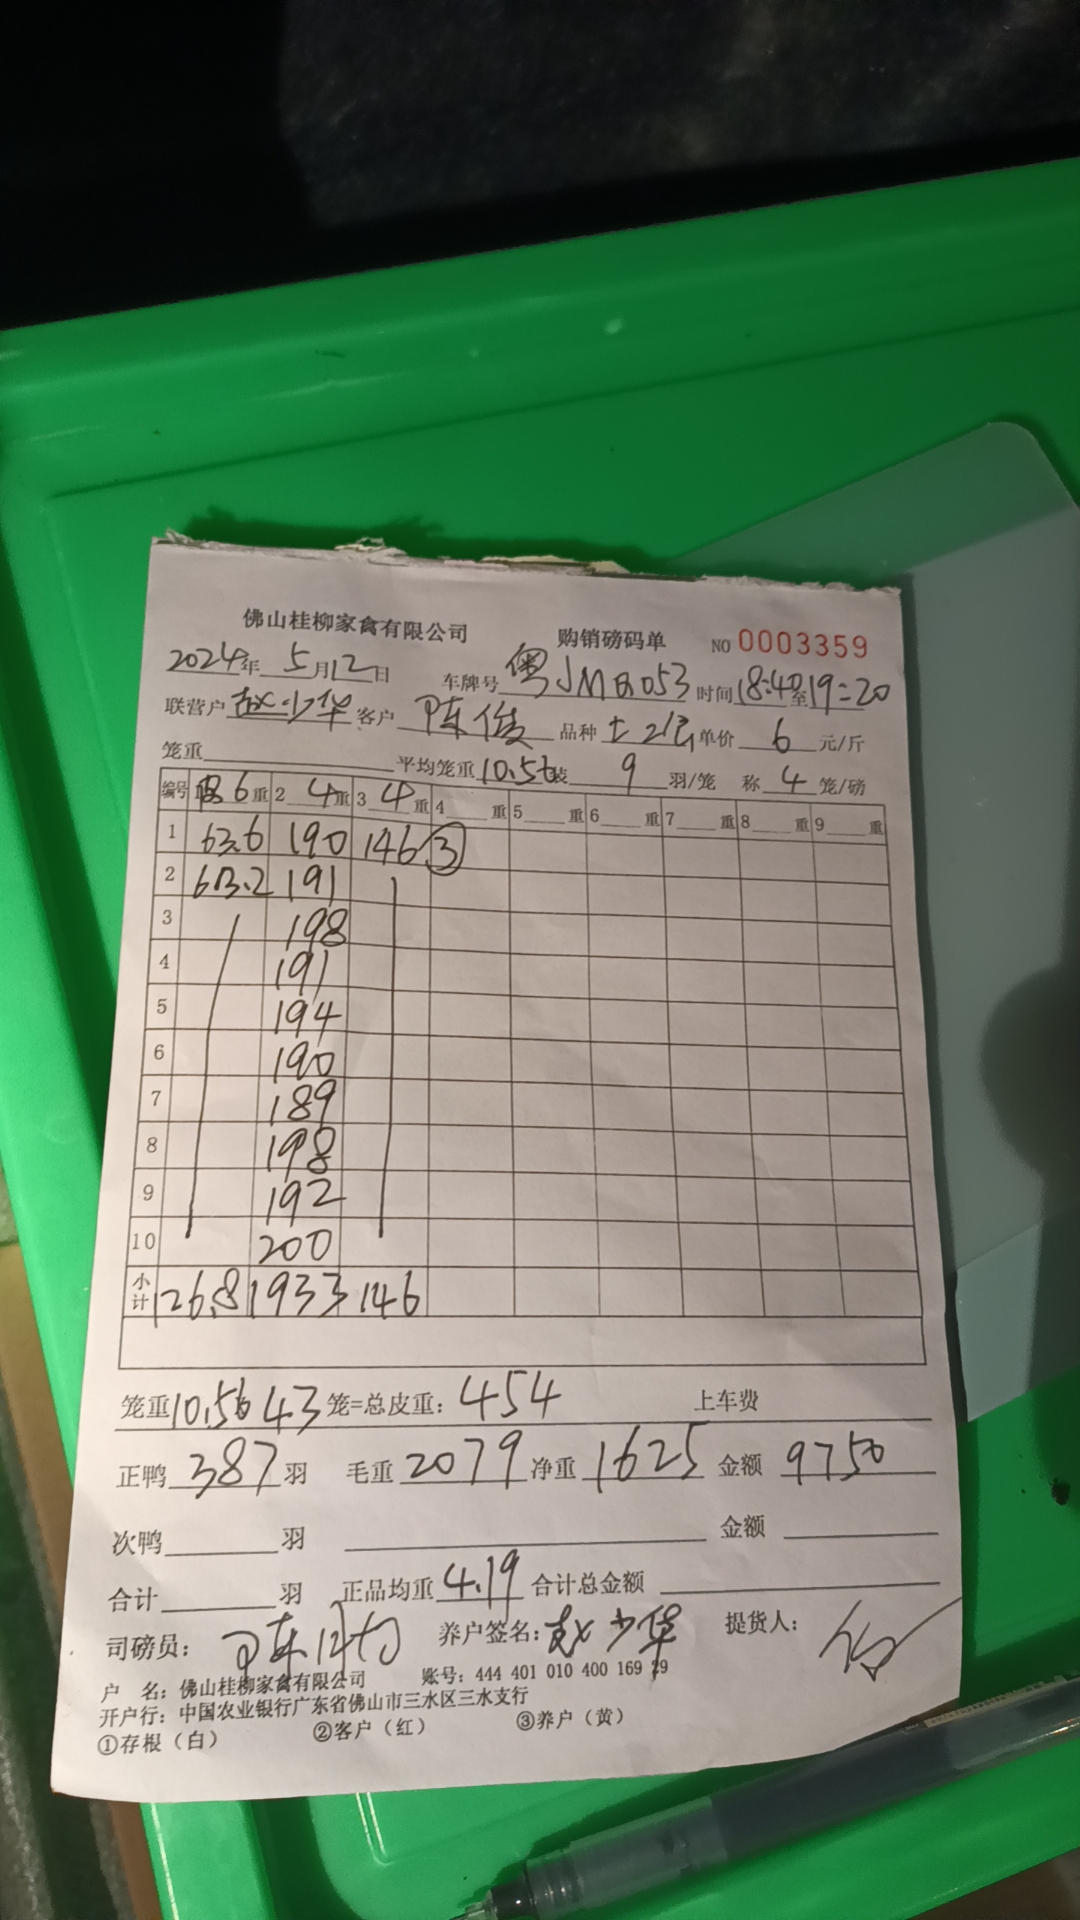 佛山桂柳家禽有限公司 购销磅码单 NO 0003359
2024年 5月12日 车牌号 粤JMB053 时间18:40至19:20
联营户 赵少华 客户 陈俊 品种 单价 6 元/斤
笼重 平均笼重10.56装 9 羽/笼 称 4 笼/磅
编号 6重 2 4重 3 4重 4 重 5 重 6 重 7 重 8 重 9 重
1 63.6 190 146 ③
2 63.2 191
3 198
4 191
5 194
6 190
7 189
8 198
9 192
10 200
小计 126.8 1933 146
笼重10.56 43笼=总皮重:454 上车费
正鸭 387 羽 毛重 2079 净重 1625 金额 9750
次鸭 羽 金额
合计 羽 正品均重 4.19 合计总金额
司磅员: 养户签名:赵少华 提货人:
户 名:佛山桂柳家禽有限公司 账号:444 401 010 400 169 29
开户行:中国农业银行广东省佛山市三水区三水支行
①存根(白) ②客户(红) ③养户(黄)